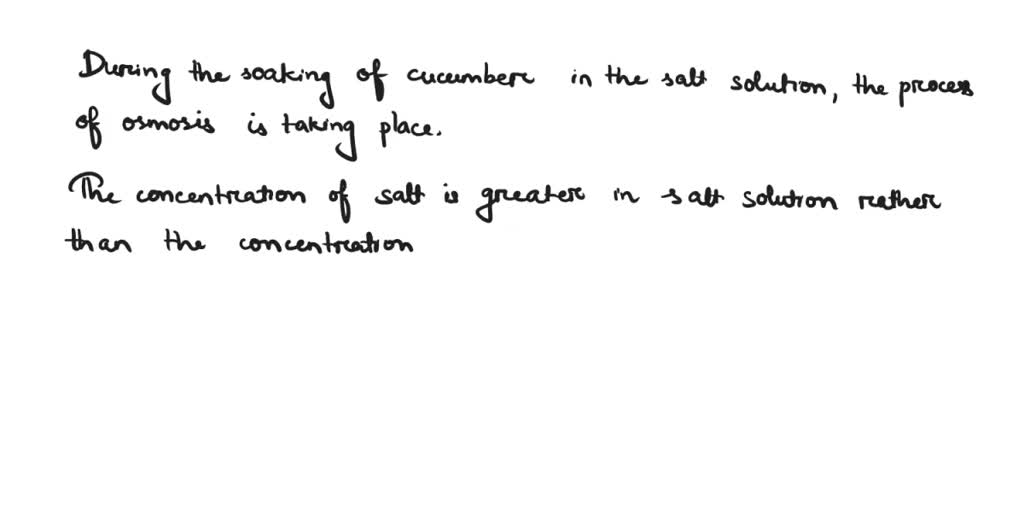 During the soaking of cucumber in the salt solution, the process
of osmosis is taking place.
The concentration of salt is greater in salt solution rather
than the concentration